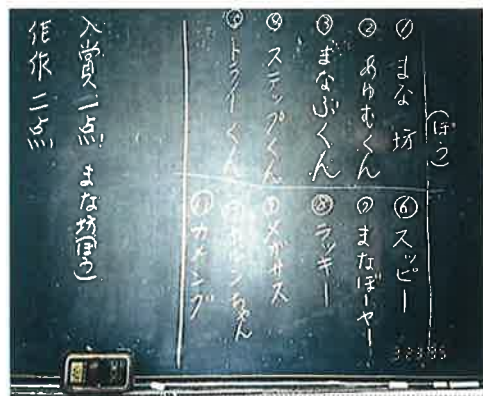 (ぼう)
① まな 坊
② あゆむくん
③ まなぶくん
④ ステップくん
⑤ トライくん
⑥ スッピー
⑦ まなぼーヤー
⑧ ラッキー
⑨ メガサス
ちゃん
⑪ カメング
入賞 一点 まな坊(ぼう)
佳作 二点